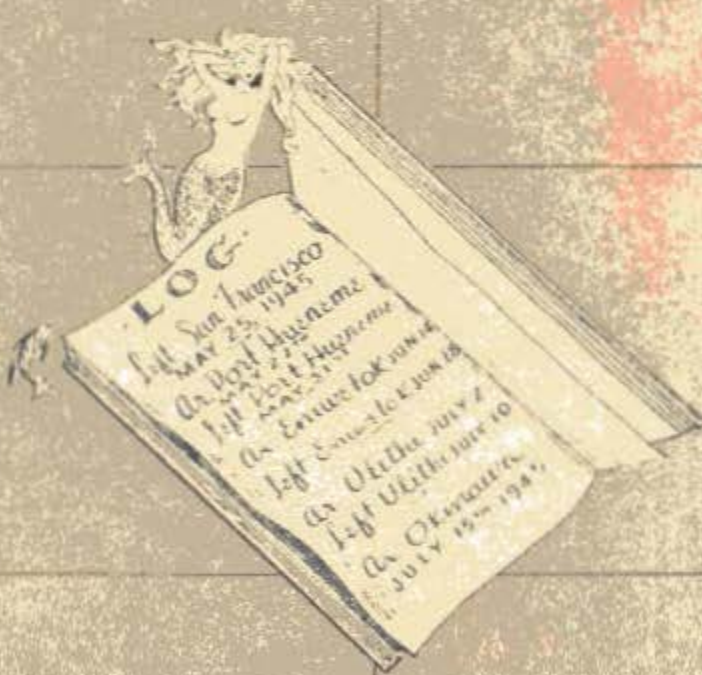 LOG.
Left San Francisco
MAY 25, 1945
Ar Port Hueneme
MAY
Left Port Hueneme
MAY 31ST
Ar Eniwetok JUN
Left Eniwetok JUN
Ar Ulithi JULY
Left Ulithi JULY 10
Ar Okinawa
JULY 15TH 1945